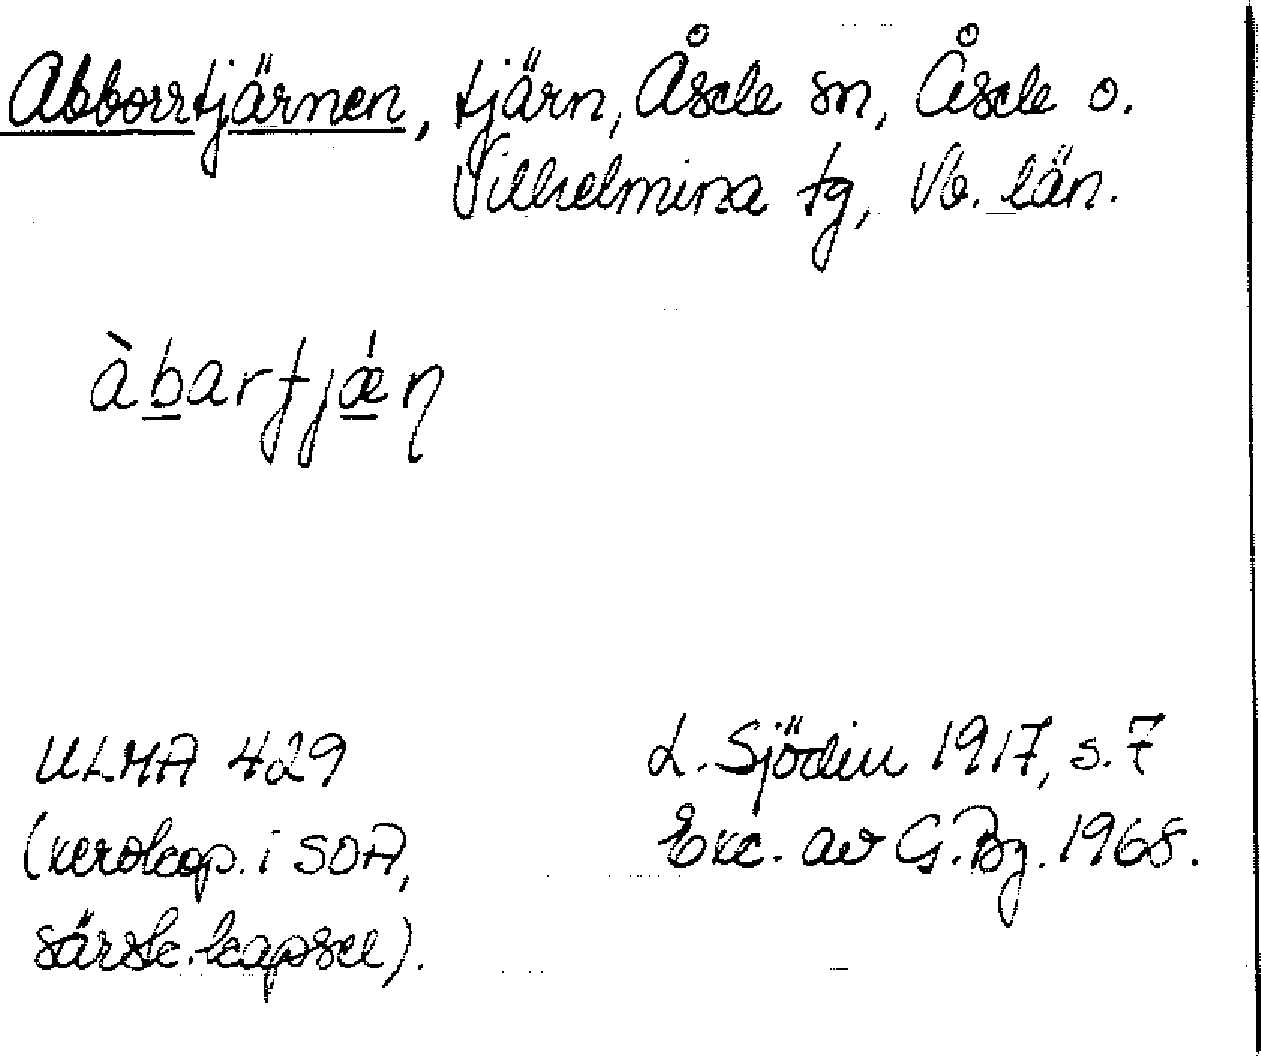 Abborrtjärnen, tjärn, Åsele sn, Åsele o.
Vilhelmina tg, Vb. län.
àbartjǽn
ULMA 429
(xerokop. i SOA,
särsk. kapsel).
L. Sjödin 1917, s. 7
Exc. av G. Bg. 1968.